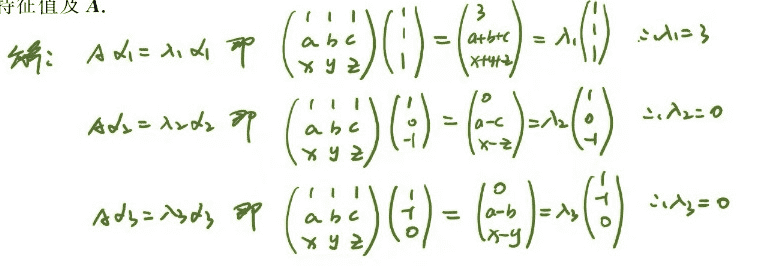 特征值及 A.
解: Aα₁ = λ₁α₁ 即 (1 1 1; a b c; x y z)(1; 1; 1) = (3; a+b+c; x+y+z) = λ₁(1; 1; 1) ∴λ₁=3
Aα₂ = λ₂α₂ 即 (1 1 1; a b c; x y z)(1; 0; -1) = (0; a-c; x-z) = λ₂(1; 0; -1) ∴λ₂=0
Aα₃ = λ₃α₃ 即 (1 1 1; a b c; x y z)(1; -1; 0) = (0; a-b; x-y) = λ₃(1; -1; 0) ∴λ₃=0